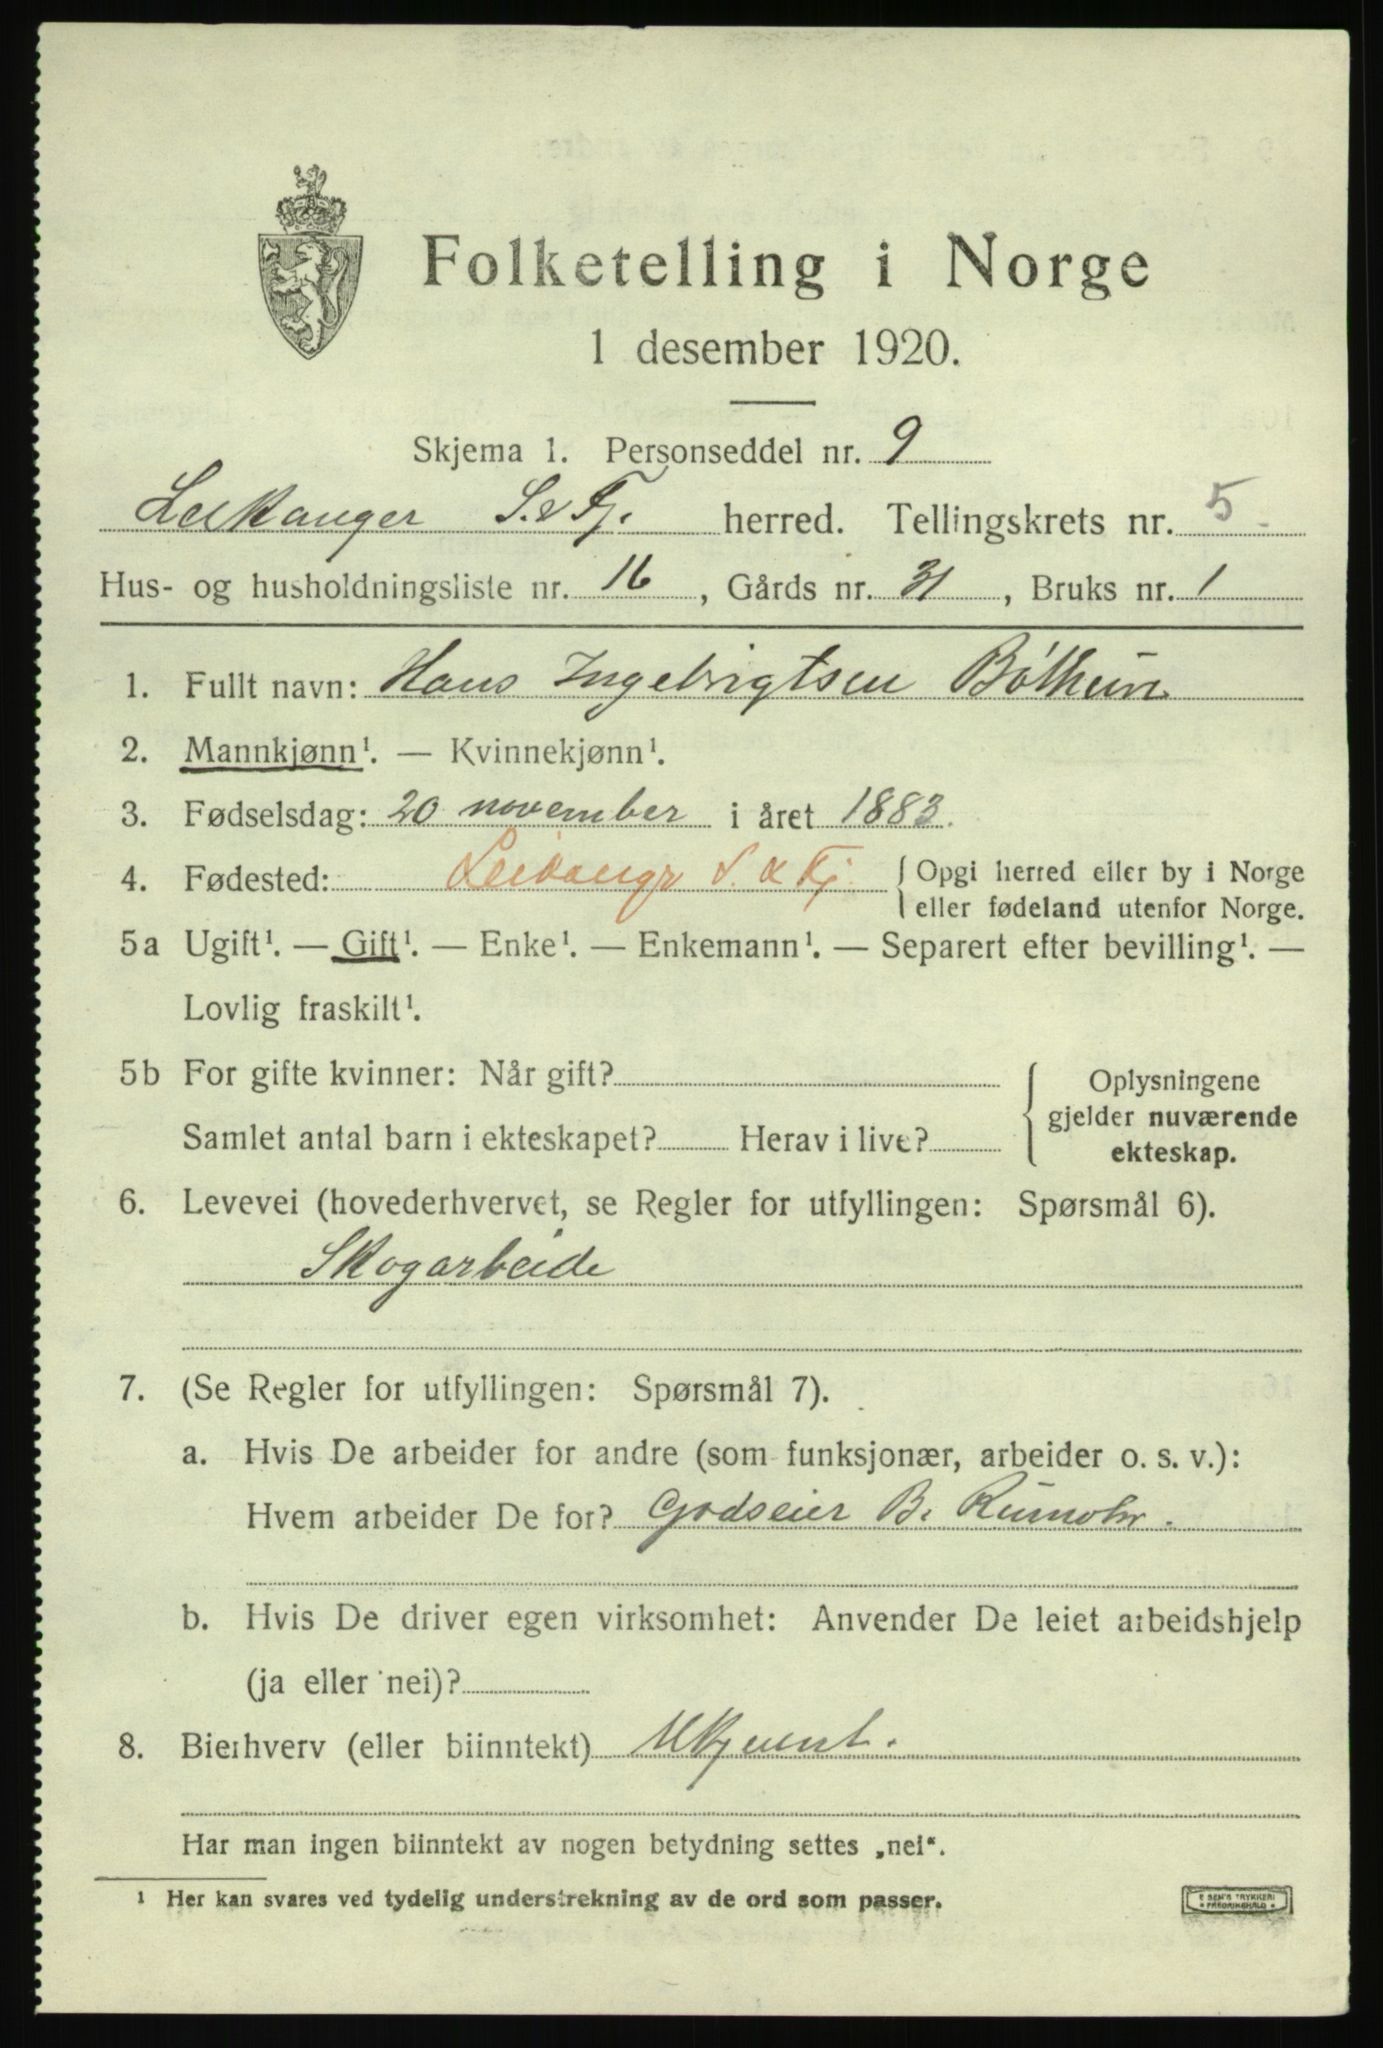 Folketelling i Norge
1 desember 1920.
Skjema 1. Personseddel nr. 9
Leikanger S. & Fj. herred. Tellingskrets nr. 5
Hus- og husholdningsliste nr. 16, Gårds nr. 31, Bruks nr. 1
1. Fullt navn: Hans Ingebrigtsen Bóthun
2. Mannkjønn¹. — Kvinnekjønn¹.
3. Fødselsdag: 20 november i året 1883.
4. Fødested: Leikanger S. & Fj. { Opgi herred eller by i Norge
eller fødeland utenfor Norge.
5a Ugift¹. — Gift¹. — Enke¹. — Enkemann¹. — Separert efter bevilling¹. —
Lovlig fraskilt¹.
5b For gifte kvinner: Når gift?
Samlet antal barn i ekteskapet? Herav i live?
Oplysningene
gjelder nuværende
ekteskap.
6. Levevei (hovederhvervet, se Regler for utfyllingen: Spørsmål 6).
Skogarbeide
7. (Se Regler for utfyllingen: Spørsmål 7).
a. Hvis De arbeider for andre (som funksjonær, arbeider o. s. v.):
Hvem arbeider De for? Godseier B. Rumohr.
b. Hvis De driver egen virksomhet: Anvender De leiet arbeidshjelp
(ja eller nei)?
8. Bierhverv (eller biinntekt) Ukjent.
Har man ingen biinntekt av nogen betydning settes „nei“.
¹ Her kan svares ved tydelig understrekning av de ord som passer.